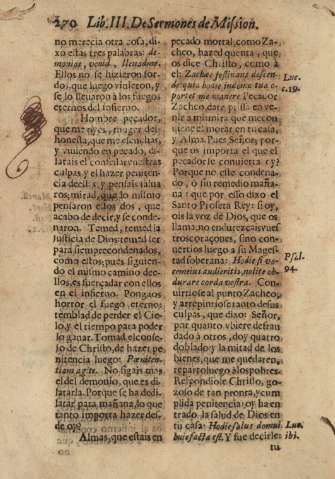 270 Lib. III. De Sermones de Mission.
no merecia otra cosa, di-
xo estas tres palabras: de-
moniae, venid, llevadlos.
Ellos no se huzieron sor-
dos, que luego vinieron, y
se los llevaron à los fuegos
eternos del Infierno.
Hombre pecador,
que me oyes, muger des-
honesta, que me escuchas,
y viviendo en pecado, di-
latais el confessar vuestras
culpas y el hazer peniten-
cia decils y pensais salva-
ros; mirad, que lo mismo
pensaron estos dos, que
acabo de decir, y se conde-
naron. Temed, temed la
Justicia de Dios: temed ser
para siempre condenados,
como ellos; pues siguien-
do el mismo camino de-
llos, es fuerça dar con ellos
en el infierno. Pongaos
horror el fuego eterno;
temblad de perder el Cie-
lo, y el tiempo para poder
lo ganar. Tomad el conse-
jo de Christo, de hazer pe-
nitencia luego: Pœniten-
tiam agite. No sigais mas
el del demonio, que es di-
latarla. Porque se ha de di-
latar para mañana, lo que
tanto importa hazer des-
de oy?
Almas, que estais en
pecado mortal, como Za-
cheo, hazed quenta, que
os dice Christo, como à
el: Zachee festinans descen-
de quia hodie indomo tua o-
portet me manere. Pecador
Zacheo, date prissa en ve-
nir a mi: mira que me con-
viene el morar en tu casa,
y Alma. Pues Señor; por-
que os importa el que el
pecador se convierta oy?
Porque no este condena-
do, ò su remedio maña-
na: que por esso dixo el
Santo Profeta Rey: si oy,
ois la voz de Dios, que os
llama; no endurezcais vues
tros coraçones, sino con-
vertios luego a su Magest
tad soberana: Hodie si vo-
cem eius audieritis, nolite ob-
durare corda vestra. Con-
virtiose al punto Zacheo,
y arrepintiose tanto de sus
culpas, que dixo: Señor,
por quanto vbiere defrau
dado à otros, doy quatro
doblado; y la mitad de los
bienes, que me quedaren,
reparto luego à los pobres.
Respondiole Christo, go-
zoso de tan prompta, y cum
plida penitencia: oy ha en
trado la salud de Dios en
tu casa: Hodie salus domui
huic facta est. Y fue decirle:
tu
Luc.
c. 19.
Psal.
94.
Luc.
ibi.